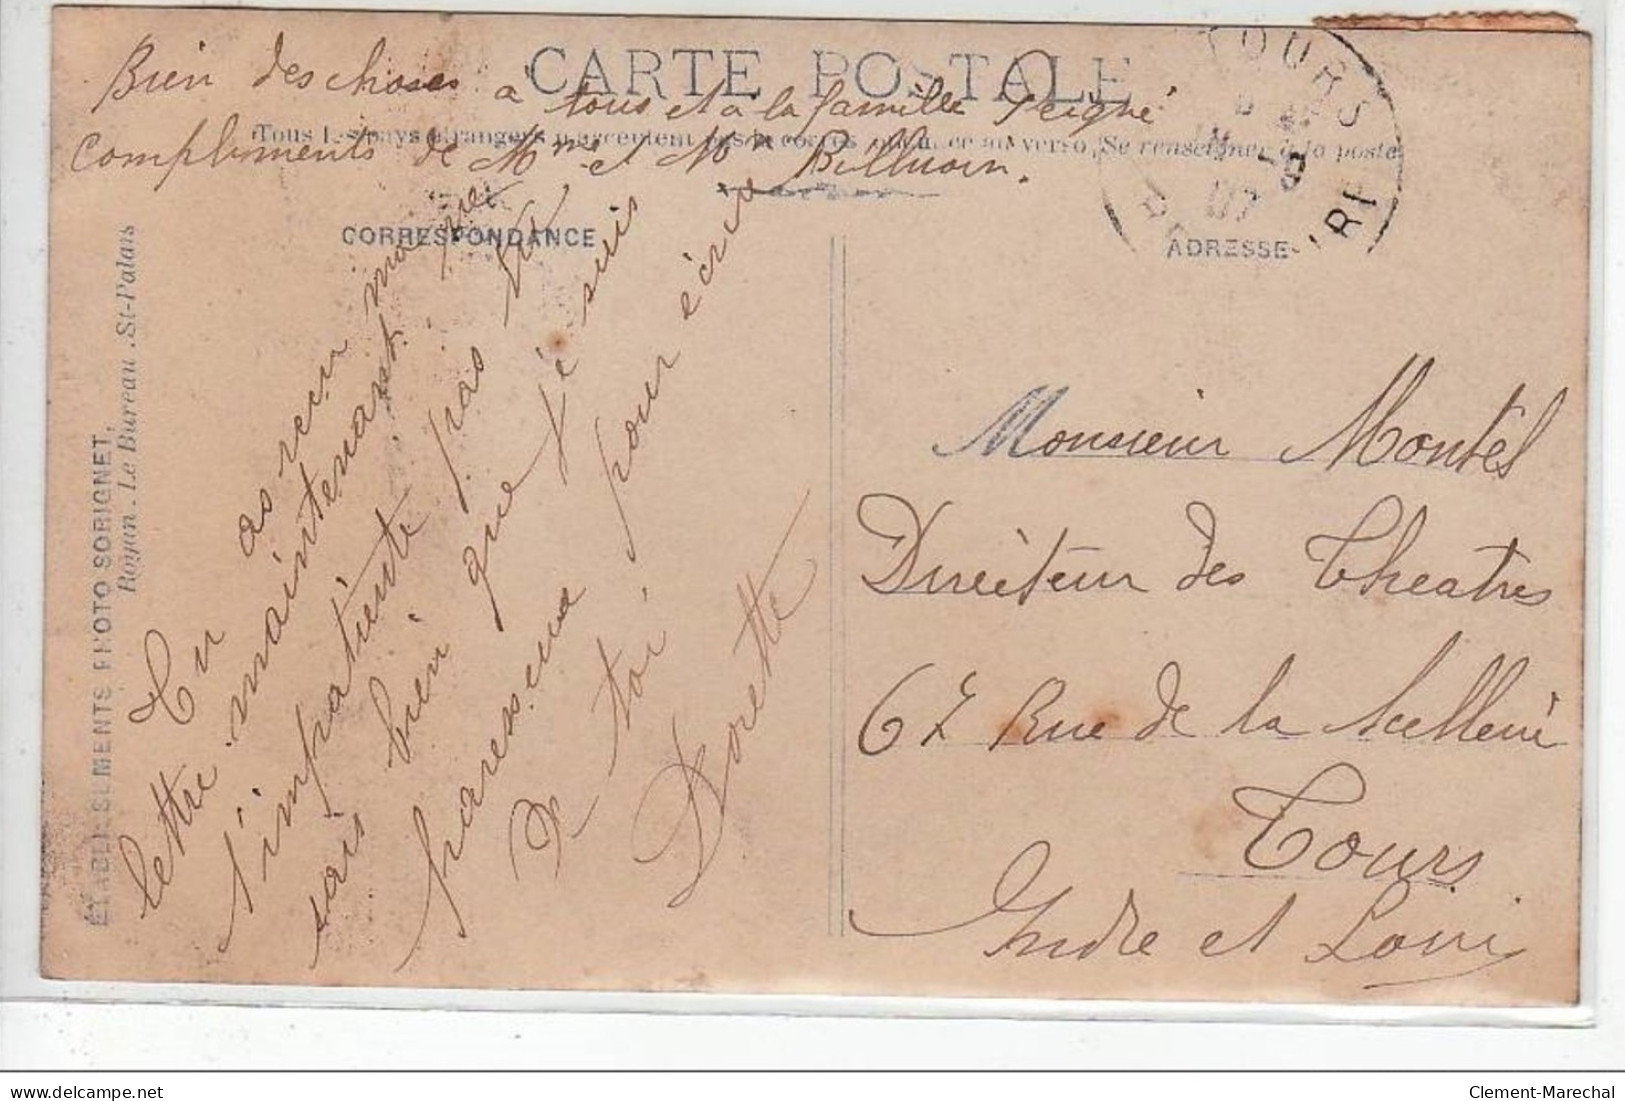 CARTE POSTALE
Bien des choses a tous et a la famille Peigné
Tous les pays étrangers n'acceptent pas la correspondance au verso (Se renseigner à la poste
Compliments de Mme et Mr
TOURS
07
CORRESPONDANCE
ADRESSE
ÉTABLISSEMENTS PHOTO SORIGNET,
Royan - Le Bureau - St-Palais
Tu as reçu ma
lettre maintenant ne
s'impatiente pas tu
sais bien que je suis
paresseuse pour écrire
A toi
Dorette
Monsieur Montel
Directeur des Theatres
67 Rue de la Scellerie
Tours
Indre et Loire
delcampe.net
Clement-Marechal